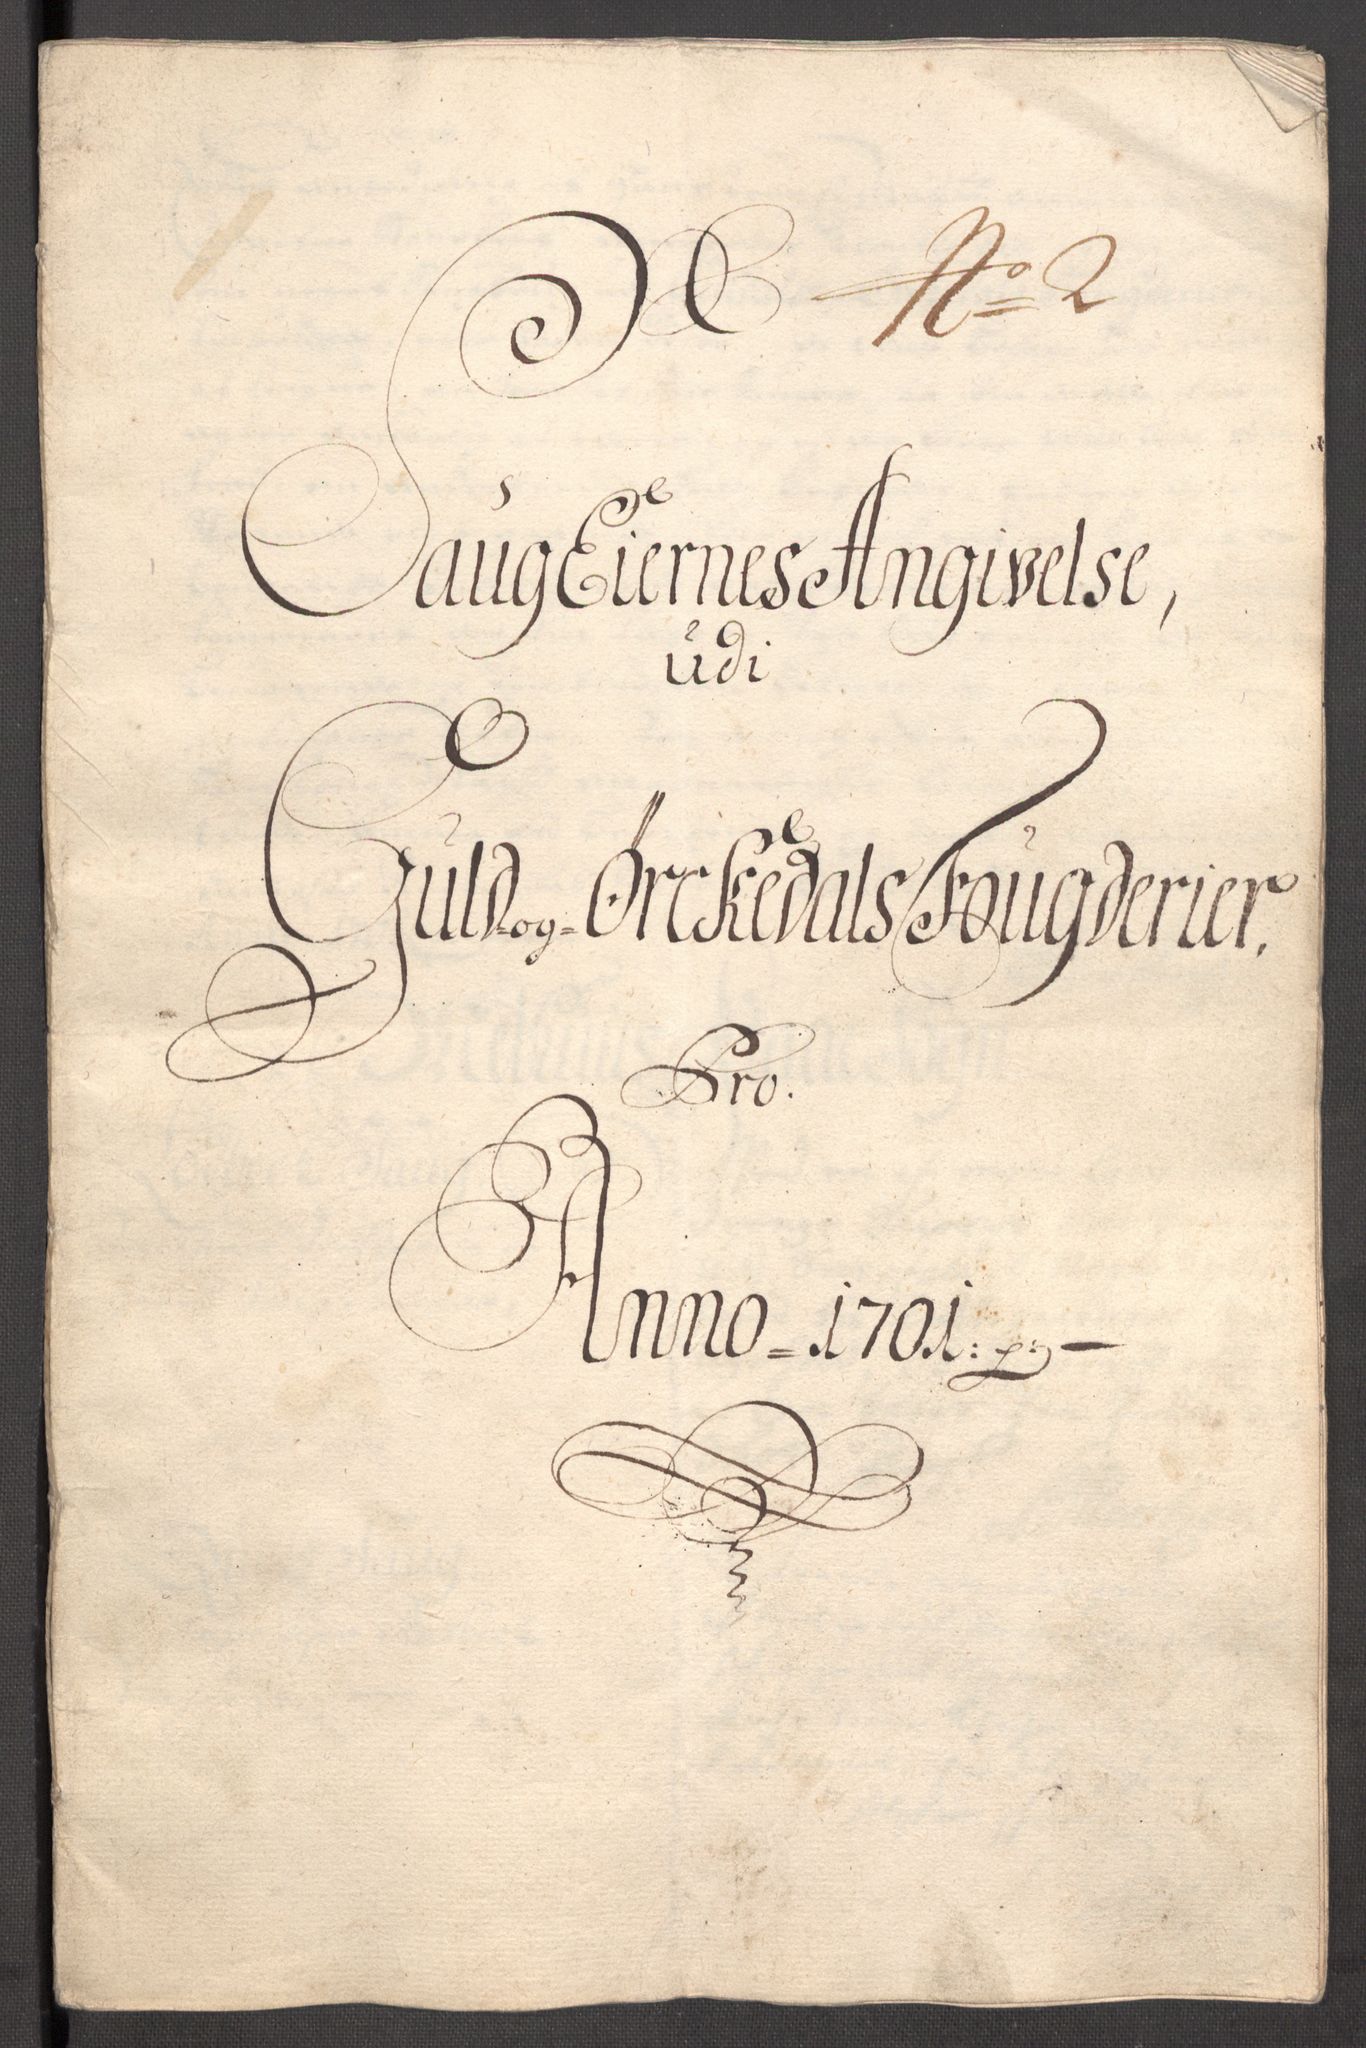 No 2
Saug Eiernes Angivelse,
udi
Guld- og- Ørckedals Fougderier.
Pro.
Anno = 1701: